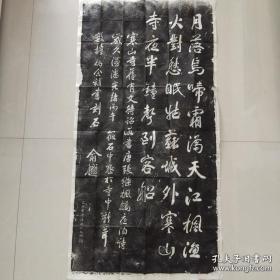 月落烏啼霜滿天江楓漁
火對愁眠姑蘇城外寒山
寺夜半鐘聲到客船
寒山寺舊有文待詔所書唐張繼楓橋夜泊詩
歲久漫漶光緒丙午筱石中丞於寺中新葺
數楹屬余補書刻石
俞樾
孔夫子旧书网